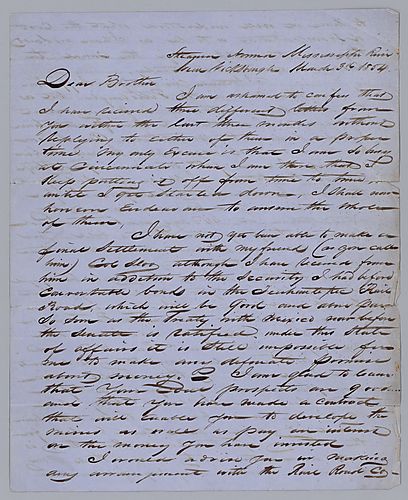 Steamer Norma Mississippi River
Near Vicksburgh March 3d 1854
Dear Brother
I am ashamed to confess that
I have received three different letters from
you within the last three months without
replying to either of them in a proper
time My only Excuse is that I am so busy
at Cincinnati when I am there that I
keep putting it off from time to time
until I get started down, I shall now
however Endeavour to answer the whole
of them,
I have not yet been able to make a
final Settlement with my friend (as you call
him) Col Sloo although I have received from
him in addition to the Security I had before
bond in the Tehuantepec Rail
Road, which will be good and above par
so soon as the Treaty with Mexico now before
the Senate is ratified under this State
of affairs it is still impossible for
me to make any definite promise
about money, I am glad to learn
that your prospects are good
and that you have made a contract
that will enable you to develope the
mines as well as pay an interest
on the money you have invested
I would advise you in making
any arrangement with the Rail Road Co